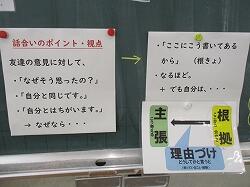 話合いのポイント・視点
友達の意見に対して、
・「なぜそう思ったの？」
・「自分と同じです。」
・「自分とはちがいます。」
→ なぜなら・・・
・「ここにこう書いてある
から」 （根きょ）
・なるほど。
+ でも自分は、・・・
主張
根拠
理由づけ